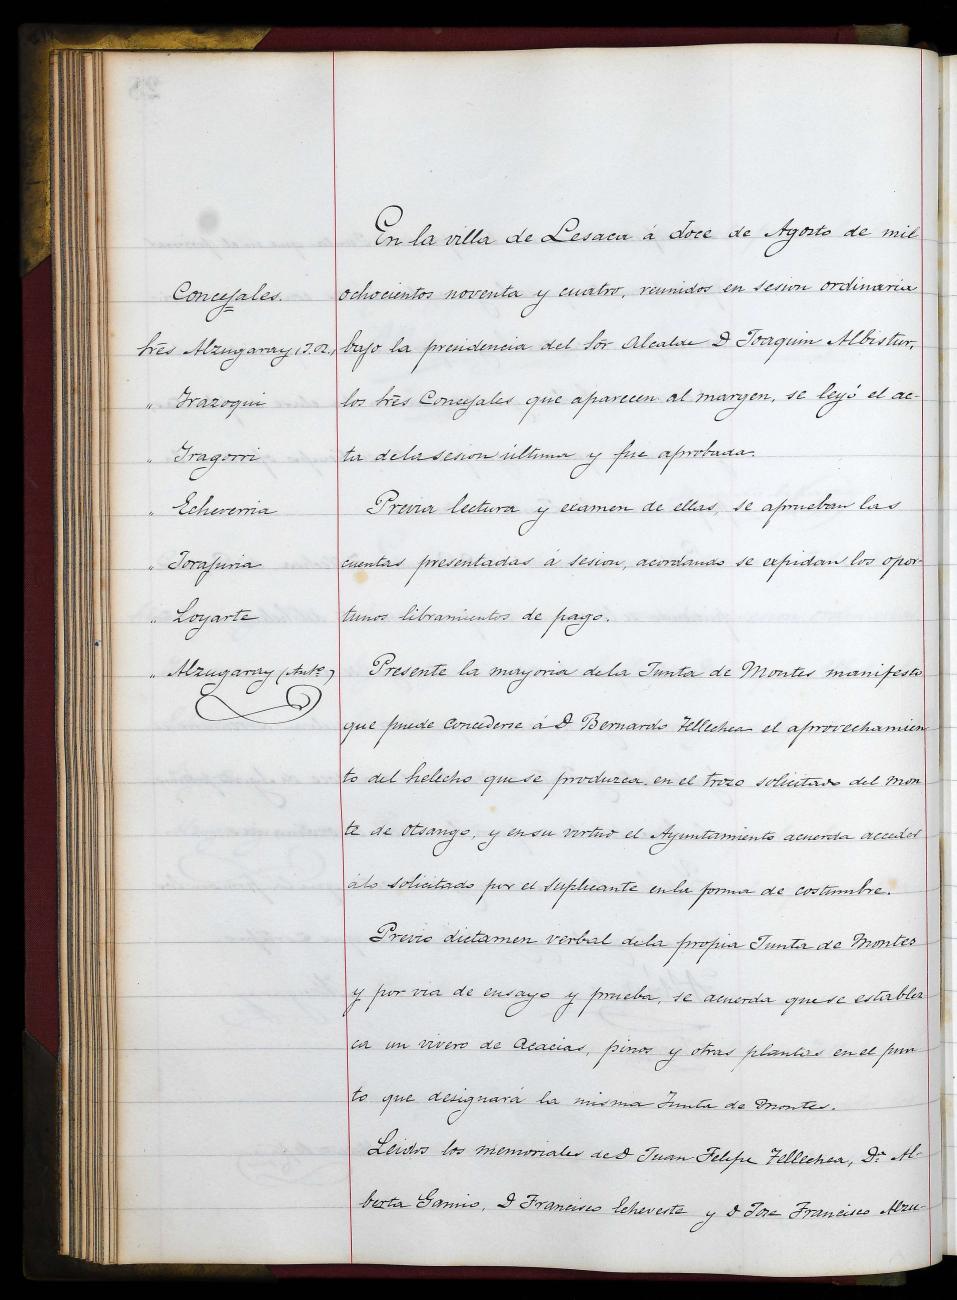 Concejales.
Sres Alzugaray (J.R.)
" Irazoqui
" Iragorri
" Echeverria
" Torajuria
" Loyarte
" Alzugaray (Anto)
En la villa de Lesaca á doce de Agosto de mil
ochocientos noventa y cuatro, reunidos en sesion ordinaria
bajo la presidencia del Sor Alcalde D Joaquin Albistur,
los Sres Concejales que aparecen al margen, se leyó el ac-
ta de la sesion última y fue aprobada.
Previa lectura y examen de ellas, se aprueban las
cuentas presentadas á sesion, acordando se expidan los opor-
tunos libramientos de pago.
Presente la mayoria de la Junta de Montes manifesto
que puede concederse á D Bernardo Tellechea el aprovechamien
to del helecho que se produzca en el trozo solicitado del mon
te de Otsango, y en su virtud el Ayuntamiento acuerda acceder
á lo solicitado por el suplicante en la forma de costumbre.
Previo dictamen verbal de la propia Junta de Montes
y por via de ensayo y prueba, se acuerda que se establez
ca un vivero de Acacias, pinos y otras plantas en el pun
to que designará la misma Junta de Montes.
Leidos los memoriales de D Juan Felipe Tellechea, Da Al-
berta Gamio, D Francisco Echeveste y D Jose Francisco Alzu-